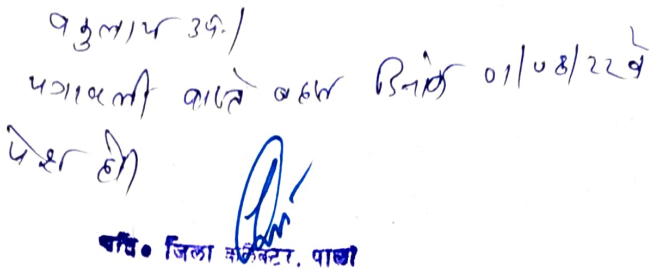 वकुलाय उप.।
पत्रावली वास्ते बहस दिनांक 01/08/22 को
पेश हो।
अति० जिला कलेक्टर, पाली